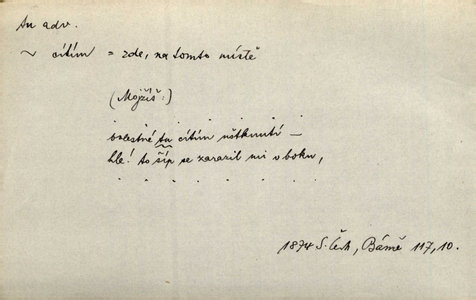 tu adv.
~ cítím = zde, na tomto místě
(Mojžíš:)
bolestné tu cítím uštknutí –
hle! to šíp se zarazil mi v boku,
. . . . . . .
1874 S. Čech, Básně 117, 10.